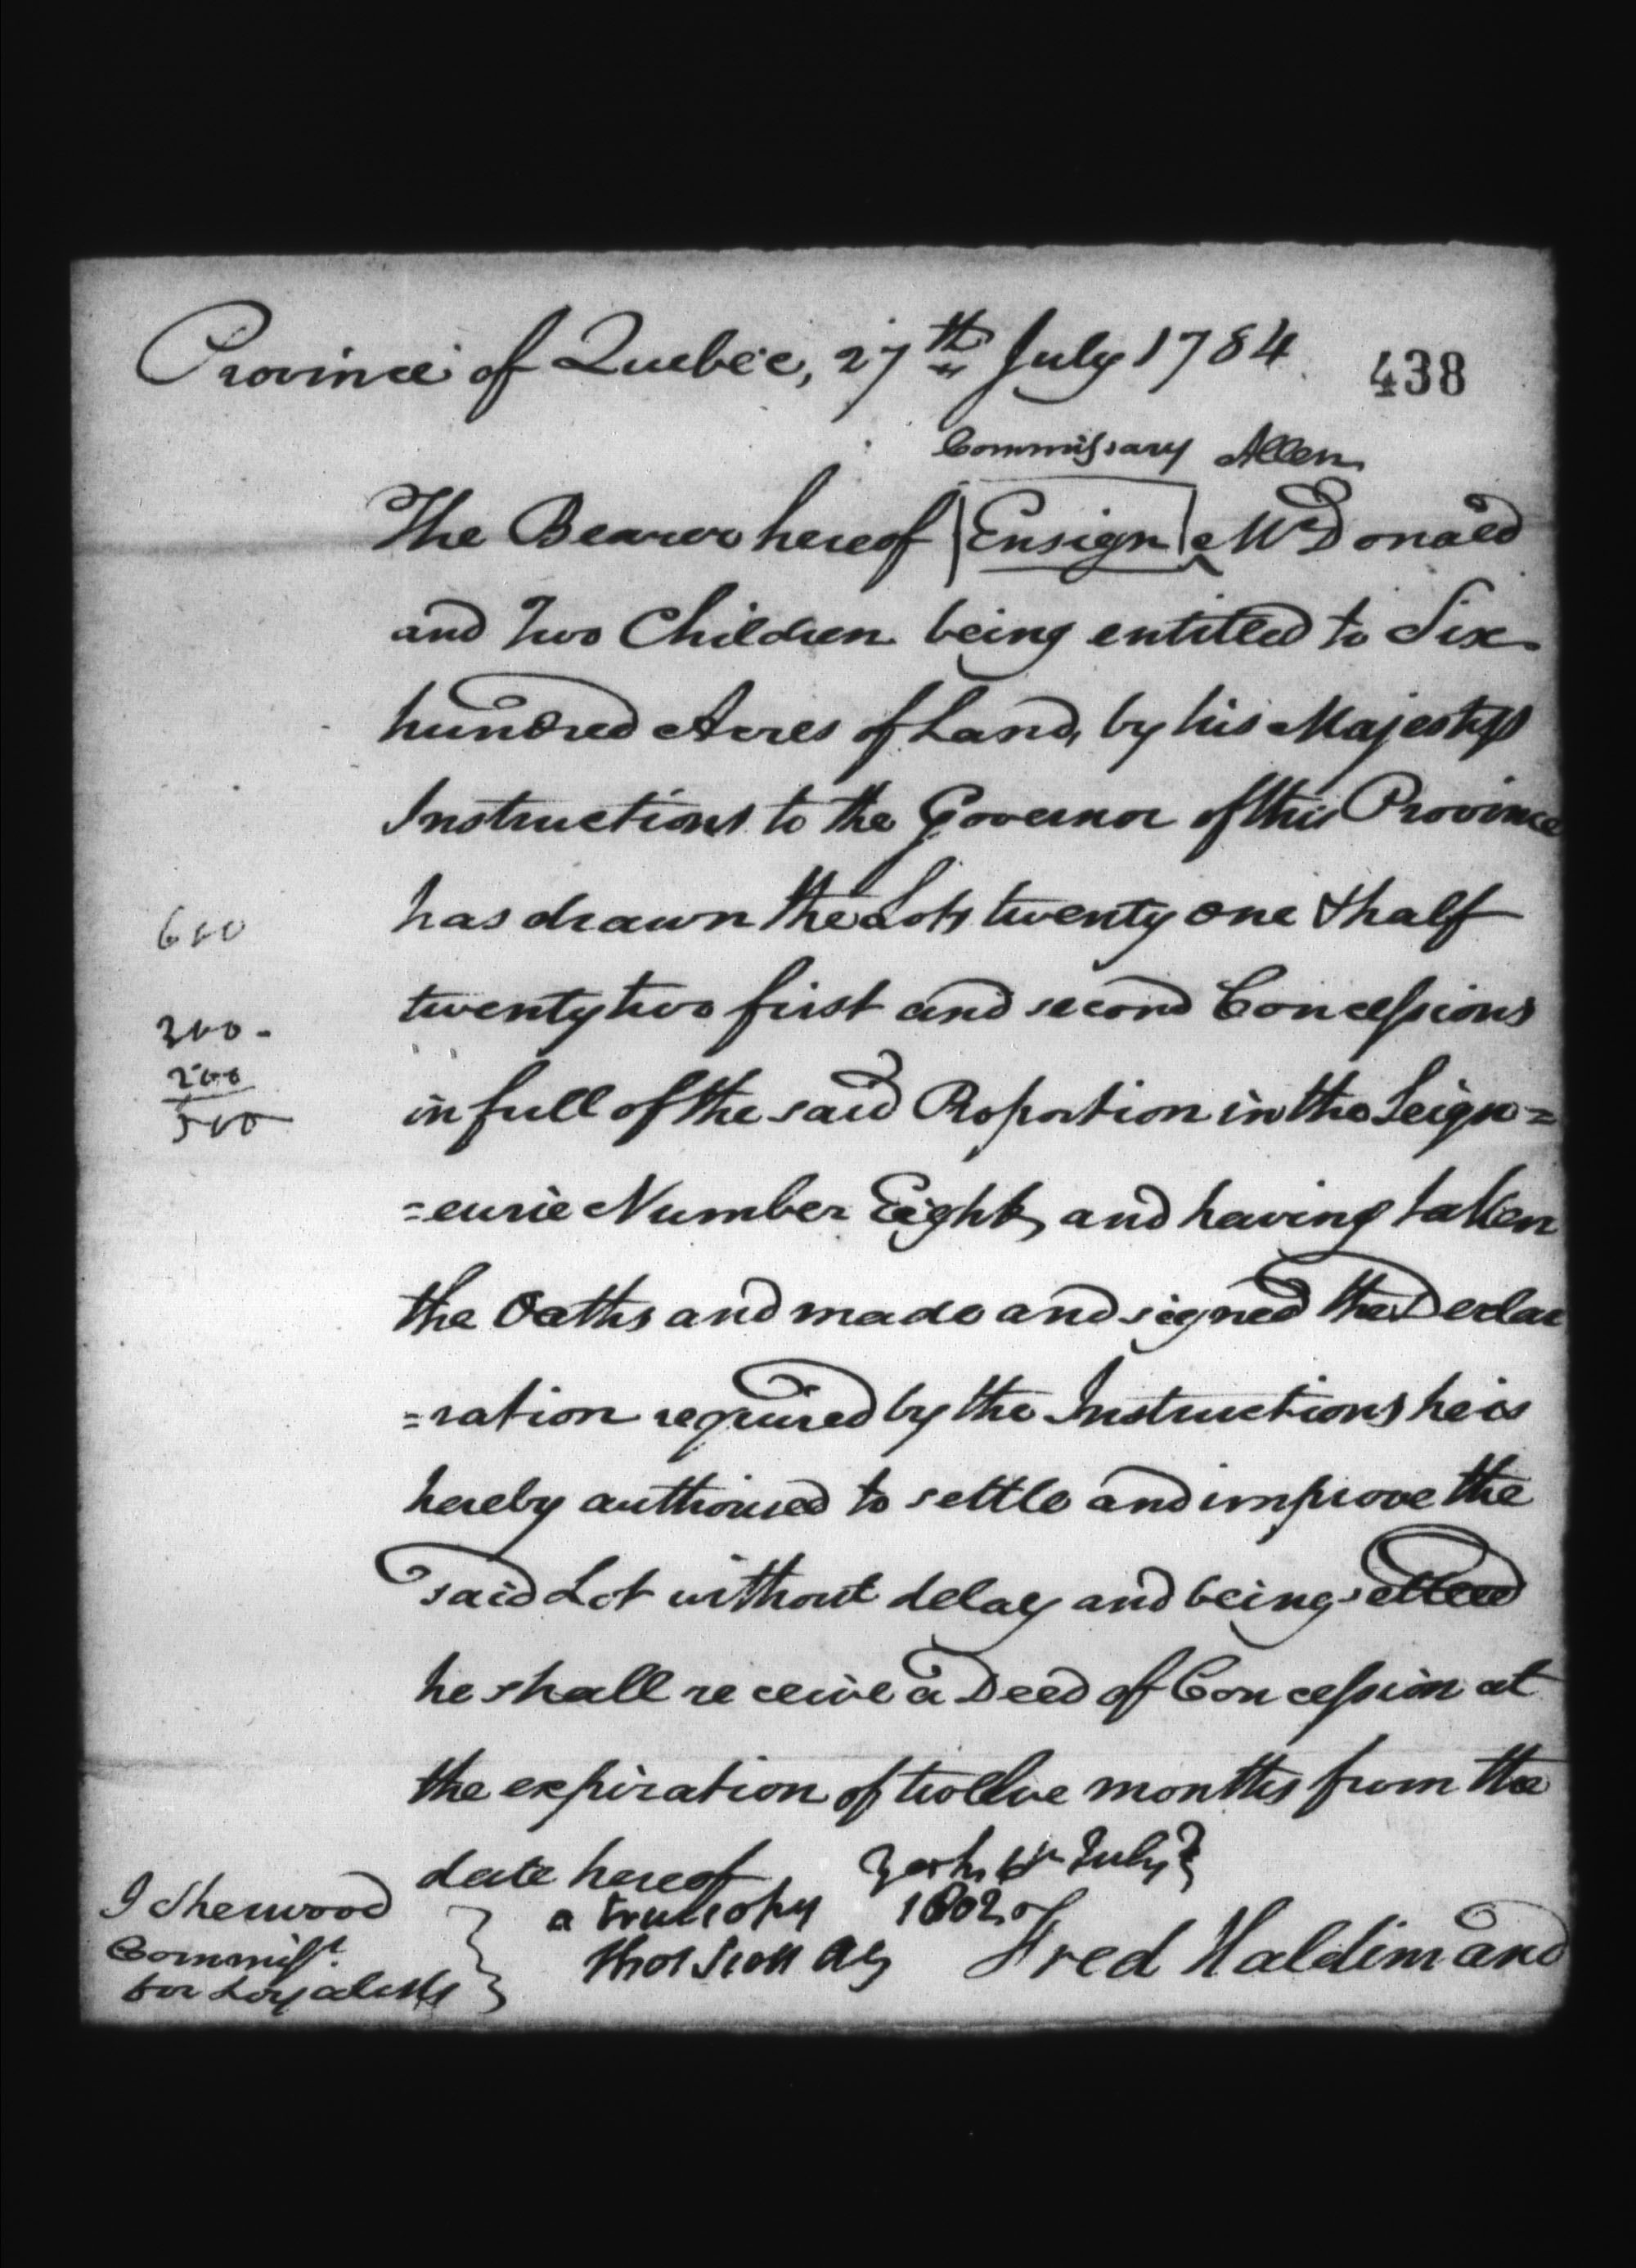 Province of Quebec, 27th July 1784
438
Commissary Allen
The Bearer hereof [Ensign] McDonald
and Two Children being entitled to Six
hundred Acres of Land, by his Majestys
Instructions to the Governor of this Province
has drawn the Lots twenty one & half
600
twenty two first and second Concessions
300-
200
in full of the said Proportion in the Seign=
500
=eurie Number Eight, and having taken
the Oaths and made and signed the Declar
=ration required by the Instructions he is
hereby authorised to settle and improve the
said Lot without delay and being settled
he shall receive a Deed of Concession at
the expiration of twelve months from the
date hereof
York, July
1802
a true Copy
Thos Scott
J Sherwood
Commisst.
for Loyalists
Fred Haldimand